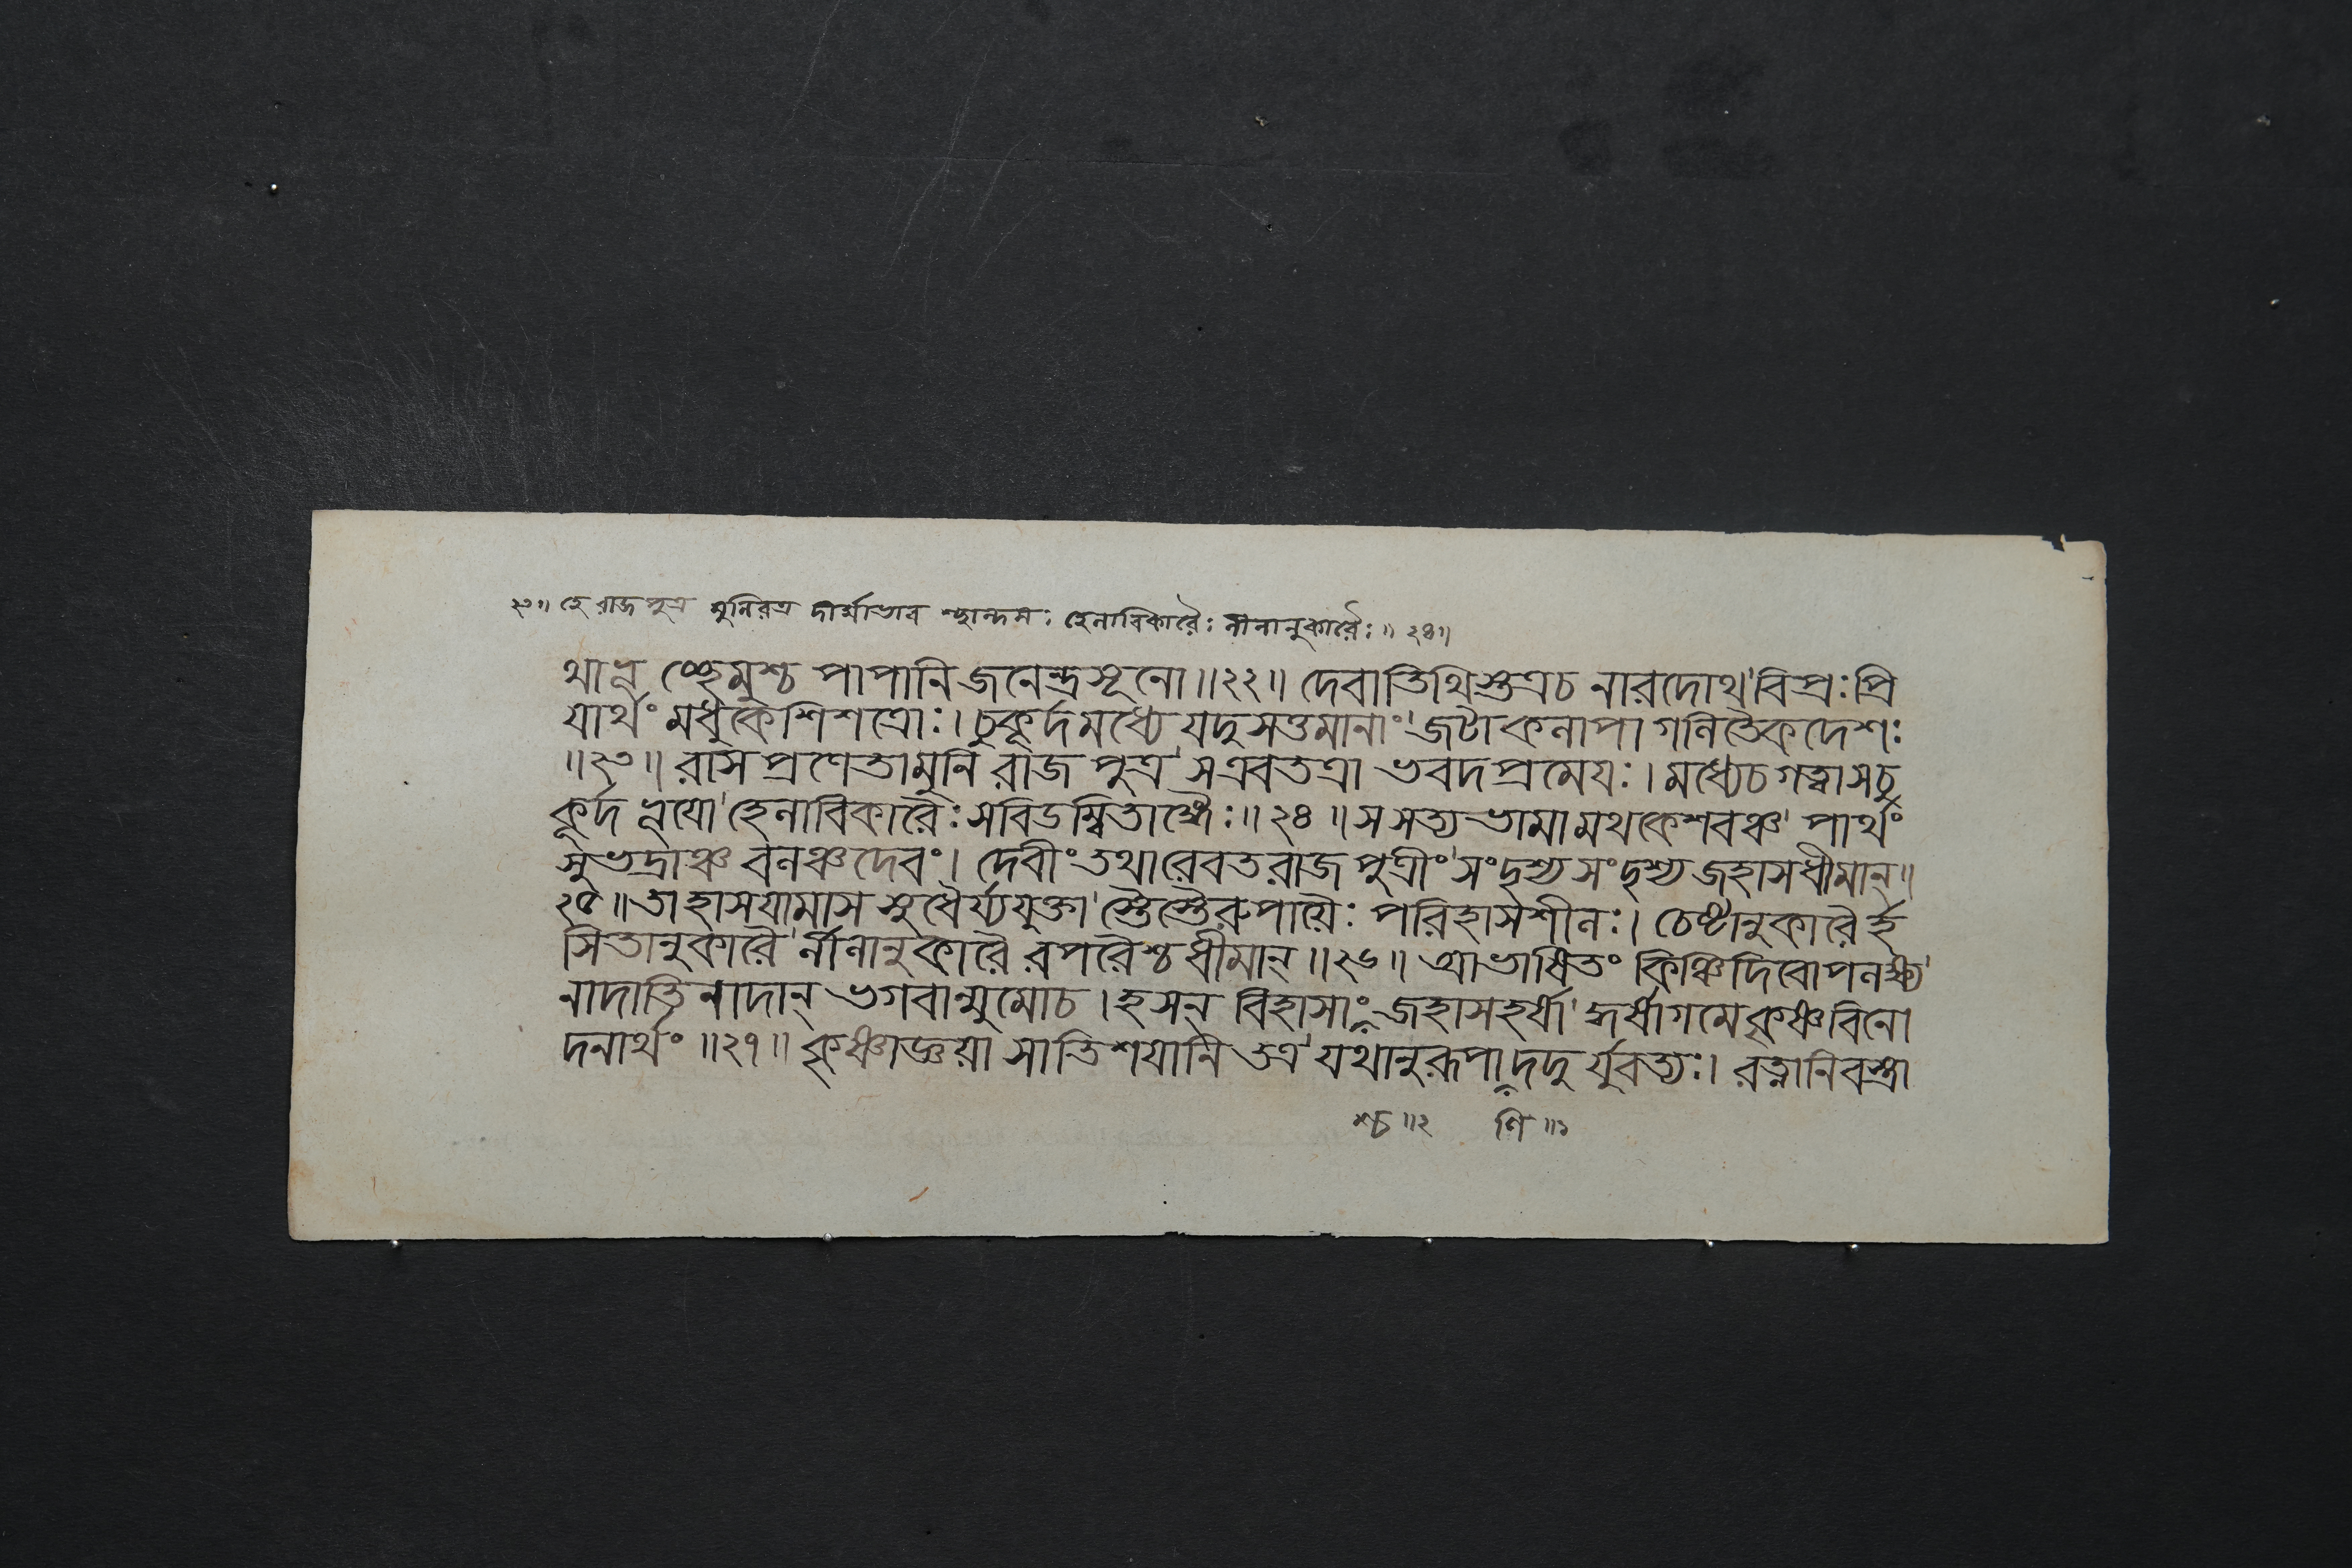 ২৩॥ হে রাজপুত্র মুনিরত্র দার্ম্মাভাব শ্ছান্দসঃ হেলাবিকারৈঃ লীলানুকারৈঃ॥ ২৪॥
থাপ্লু চ্ছ্রেমুশ্চ পাপানি জনেন্দ্রসূনো॥২২॥ দেবাতিথিশ্তত্রচ নারদোথ'বিপ্রঃপ্রি
যার্থং মধুকৈশিশত্রোঃ। চুকূর্দমধ্যে যদুসত্তমানাং'জটাকলাপা গলিতৈকদেশঃ
॥২৩॥ রাস প্রণেতামুনি রাজ পুত্র'সএবতত্রা ভবদপ্রমেযঃ। মধ্যেচগত্বাসচু
কূর্দ ভূযো'হেলাবিকারৈঃ সবিডম্বিতাঙ্গৈঃ॥২৪॥ সসত্যভামামথকেশবঞ্চ'পার্থং
সুভদ্রাঞ্চ বলঞ্চদেবং। দেবীং তথারেবতরাজপুত্রীং'সংদৃশ্যসংদৃশ্য জহাসধীমান্॥
২৫॥তাহাসযামাস সুধৈর্য্যযুক্তা'স্তৈস্তৈরুপাযৈঃ পরিহাসশীলঃ। চেষ্টানুকারৈর্হ
সিতানুকারৈ'র্লীলানুকারৈ রপরৈশ্চধীমান্॥২৬॥ আভাষিতং কিঞ্চিদিবোপলক্ষ্য'
নাদাতিনাদান্ ভগবান্মুমোচ। হসন্ বিহাসাং জহাসহর্ষা'দ্ধর্ষাগমেকৃষ্ণবিনো
দনার্থং॥২৭॥ কৃষ্ণাজ্ঞযা সাতিশযানি তত্র'যথানুরূপা দদু র্যুবত্যঃ। রত্নানিবস্ত্রা
শ্চ॥২ ণি॥১